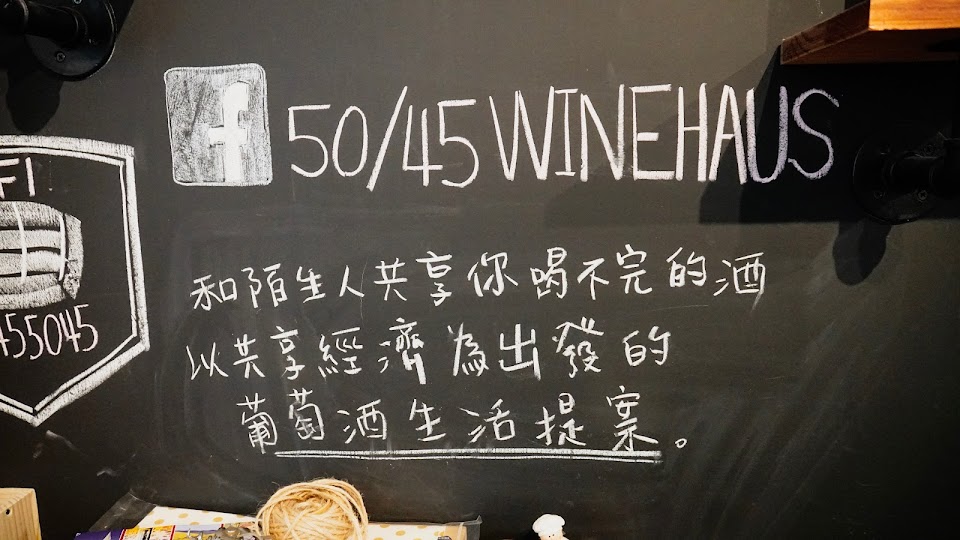 f 50/45 WINEHAUS
和陌生人共享你喝不完的酒
以共享經濟為出發的
葡萄酒生活提案。
FI
455045